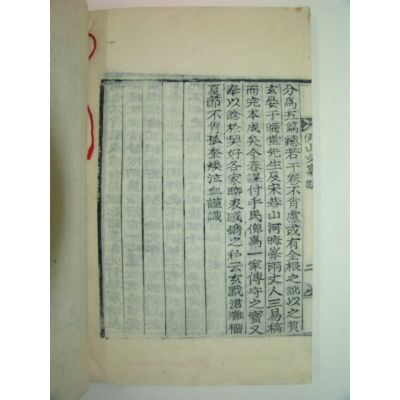 伊山文集 跋 二
分爲五篇總若干卷不肖慮或有金根之訛以之質
玄晏于晦堂先生及宋恭山河晦峯兩丈人三易稿
而完本成矣今春謀付手民俾爲一家傳守之寶又
奉以諗於契好各家聊表感鐫之私云玄黓涒灘榴
夏節不肖孤奎煐泣血謹識